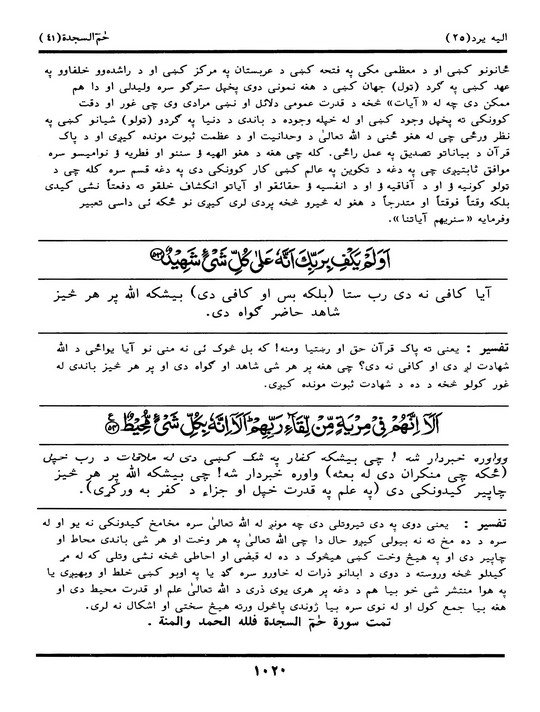 الیه یرد(۲۵)
حٰمٓ السجدة(۴۱)
ځانونو کښی او د معظمی مکې په فتحه کښی د عربستان په مرکز کښی او د راشده‌وو خلفاوو په
عهد کښی په ګرد (ټول) جهان کښی د هغه نمونی دوی پخپل سترګو سره ولیدلی او دا هم
ممکن دی چه له «آیات» څخه د قدرت عمومی دلائل او نښی مرادی وی چې غور او دقت
کوونکی ته پخپل وجود کښی او له خپله وجوده د باندی د دنیا په ګردو (ټولو) شیانو کښی په
نظر ورځی چې له هغو څخه د الله تعالیٰ د وحدانیت او د عظمت ثبوت مونده کیږی او د پاک
قرآن د بیاناتو تصدیق په عمل راځی. کله چې هغه د هغو الهیه ؤ سننو او فطریه ؤ نوامیسو سره
موافق ثابتیږی چې په دغه د تکوین په عالم کښی کار کوونکی دی په دغه قسم سره کله چې د
ټولو کونیه ؤ او د آفاقیه ؤ او د انفسیه ؤ حقائقو او آیاتو انکشاف خلقو ته دفعتاً نشی کیدی
بلکه وقتاً فوقتاً او متدرجاً د هغو له څیرو څخه پردی لری کیږی نو ځکه ئی داسی تعبیر
وفرمایه «سنریهم آیاتنا».
اَوَلَمْ یَکْفِ بِرَبِّكَ اَنَّهٗ عَلٰی کُلِّ شَیْءٍ شَهِیْدٌ ۝۵۳
آیا کافی نه دی رب ستا (بلکه بس او کافی دی) بیشکه الله پر هر څیز
شاهد حاضر ګواه دی.
تفسیر : یعنی ته پاک قرآن حق او رښتیا ومنه! که بل څوک ئی نه منی نو آیا یواځی د الله
شهادت لږ دی او کافی نه دی؟ چې هغه پر هر شی شاهد او ګواه دی او پر هر څیز باندی له
غور کولو څخه د ده د شهادت ثبوت مونده کیږی.
اَلَآ اِنَّهُمْ فِیْ مِرْیَةٍ مِّنْ لِّقَآءِ رَبِّهِمْ اَلَآ اِنَّهٗ بِکُلِّ شَیْءٍ مُّحِیْطٌ ۝۵۴
وواوره خبردار شه ! چې بیشکه کفار په شک کښی دی له ملاقات د رب خپل
(ځکه چې منکران دی له بعثه) واوره خبردار شه! چې بیشکه الله پر هر څیز
چاپیر کیدونکی دی (په علم په قدرت خپل او جزاء د کفر به ورکړی).
تفسیر : یعنی دوی په دی تیروتلی دی چه مونږ له الله تعالیٰ سره مخامخ کیدونکی نه یو او له
سره د ده مخ ته نه بیولی کیږو حال دا چې الله تعالیٰ په هر وخت او هر شی باندی محاط او
چاپیر دی او په هیڅ وخت کښی هیڅوک د ده له قبضی او احاطی څخه نشی وتلی که له مړ
کیدلو څخه وروسته د دوی د ابدانو ذرات له خاورو سره ګډ یا په اوبو کښی خلط او وبهیږی یا
په هوا منتشر شی خو بیا هم د دغه پر هری یوی ذری د الله تعالیٰ علم او قدرت محیط دی او
هغه بیا جمع کول او له نوی سره بیا ژوندی پاڅول ورته هیڅ سختی او اشکال نه لری.
تمت سورة حٰمٓ السجدة فلله الحمد والمنة .
۱۰۲۰